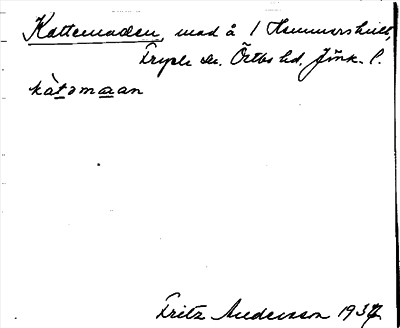 Kattemaden, mad å 1 Hemmershult,
Fryele sn. Östbo hd. Jönk. l.
kàtəmaan
Fritz Andersson 1937